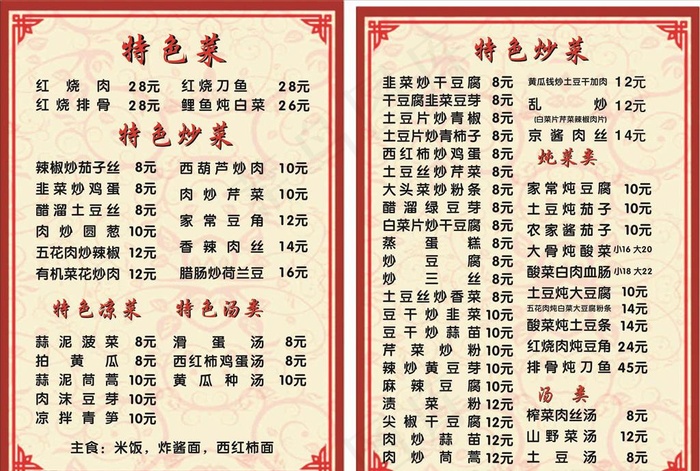 特色菜
红烧肉 28元 红烧刀鱼 28元
红烧排骨 28元 鲤鱼炖白菜 26元
特色炒菜
辣椒炒茄子丝 8元 西葫芦炒肉 10元
韭菜炒鸡蛋 8元 肉炒芹菜 10元
醋溜土豆丝 8元 家常豆角 12元
肉炒圆葱 10元 香辣肉丝 14元
五花肉炒辣椒 12元 腊肠炒荷兰豆 16元
有机菜花炒肉 12元
特色凉菜 特色汤类
蒜泥菠菜 8元 滑蛋汤 8元
拍黄瓜 8元 西红柿鸡蛋汤 8元
蒜泥茼蒿 10元 黄瓜种汤 10元
肉沫豆芽 10元
凉拌青笋 10元
主食：米饭，炸酱面，西红柿面
特色炒菜
韭菜炒干豆腐 8元
干豆腐韭菜豆芽 8元
土豆片炒青椒 8元
土豆片炒青柿子 8元
西红柿炒鸡蛋 8元
土豆丝炒芹菜 8元
大头菜炒粉条 8元
醋溜绿豆芽 8元
白菜片炒干豆腐 8元
蒸蛋糕 8元
炒豆腐 8元
炒三丝 8元
土豆丝炒香菜 8元
豆干炒韭菜 10元
豆干炒蒜苗 10元
芹菜炒粉 10元
辣炒黄豆芽 10元
麻辣豆腐 10元
渍菜粉 12元
尖椒干豆腐 12元
肉炒蒜苗 12元
肉炒茼蒿 10元
黄瓜钱炒土豆干加肉 12元
乱炒 12元
(白菜片芹菜辣椒肉片)
京酱肉丝 14元
炖菜类
家常炖豆腐 10元
土豆炖茄子 10元
农家酱茄子 10元
大骨炖酸菜 小16 大20
酸菜白肉血肠 小18 大22
土豆炖大豆腐 10元
五花肉炖白菜大豆腐粉条 14元
酸菜炖土豆条 14元
红烧肉炖豆角 24元
排骨炖刀鱼 45元
汤类
榨菜肉丝汤 8元
山野菜汤 12元
土豆汤 8元